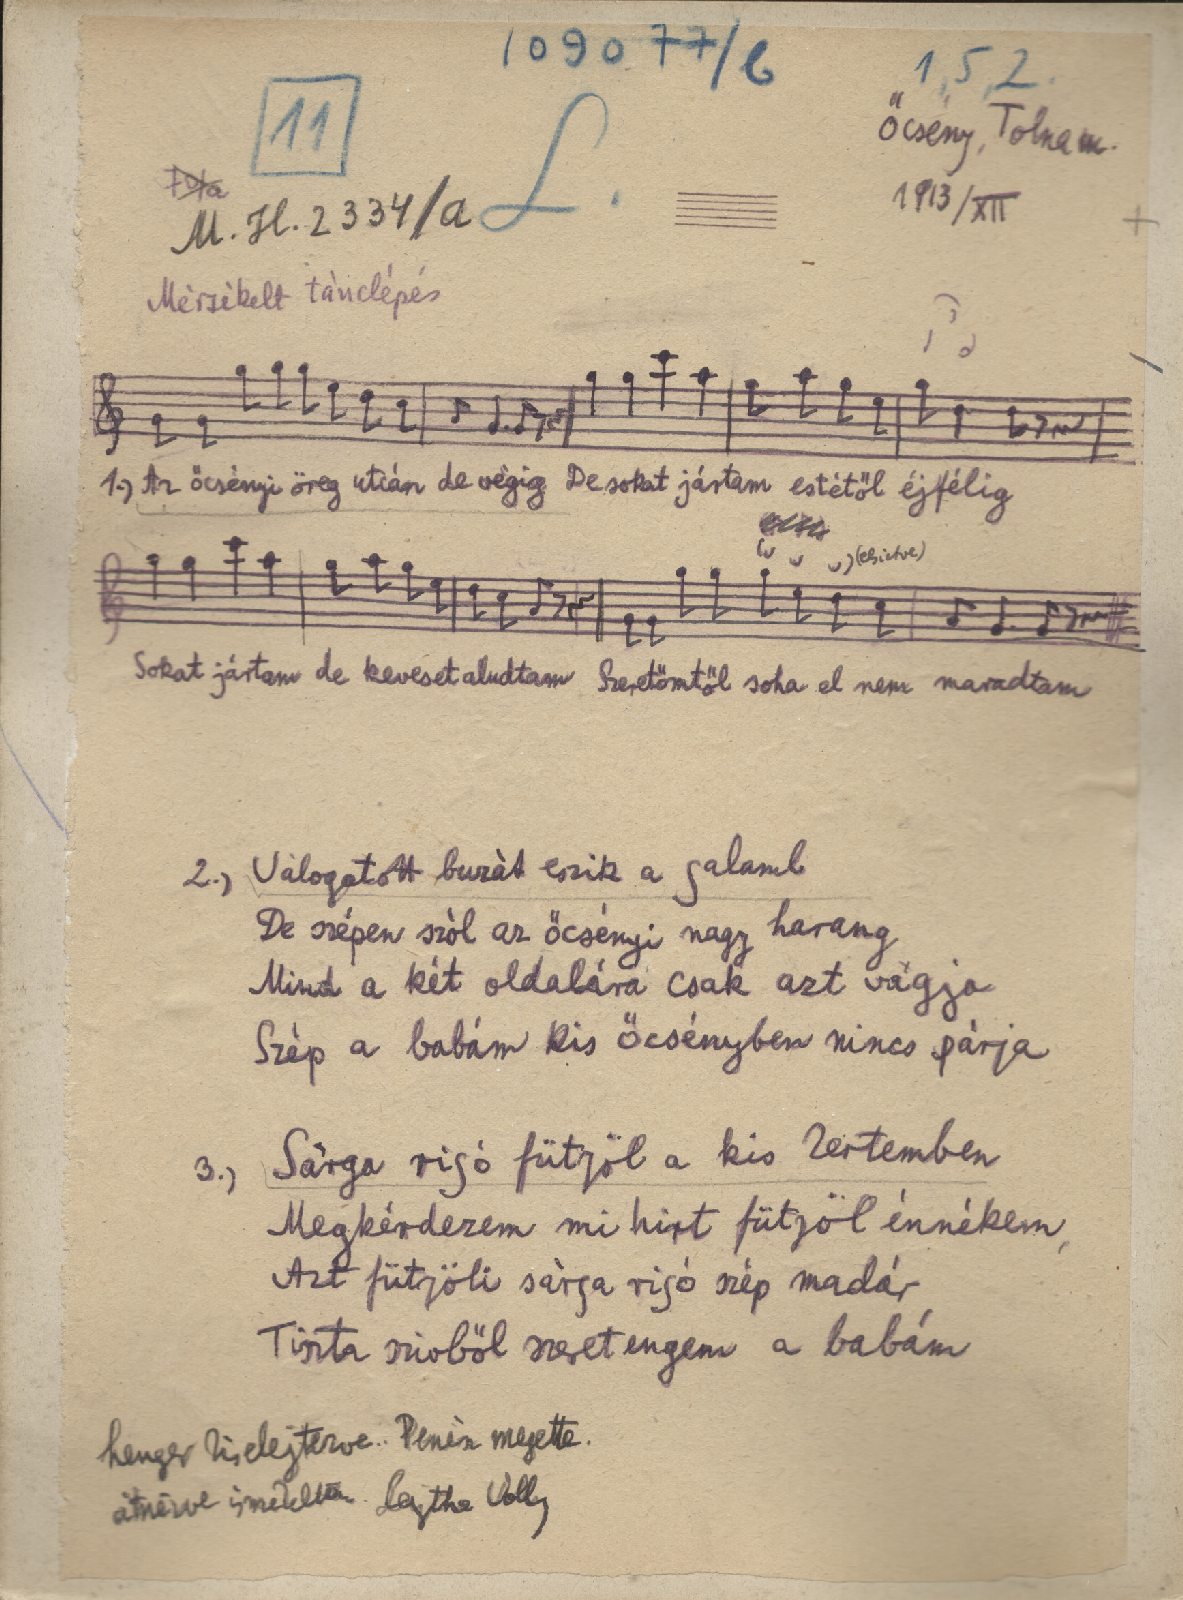 109077/b
1,5,2.
11
L.
Őcsény, Tolna m.
M.H.2334/a
1913/XII
Mérsékelt tánclépés
1.) Az őcsényi öreg utcán de végig De sokat jártam estétől éjfélig
Sokat jártam de keveset aludtam Szeretömtől soha el nem maradtam
2.) Válogatott buzát eszik a galamb
De szépen szól az őcsényi nagy harang
Mind a két oldalára csak azt vágja
Szép a babám kis őcsényben nincs párja
3.) Sárga rigó fütyöl a kis kertemben
Megkérdezem mi hirt fütyöl énnékem,
Azt fütyöli sárga rigó szép madár
Tiszta szivböl szeret engem a babám
henger
Penész megette.
Lajtha